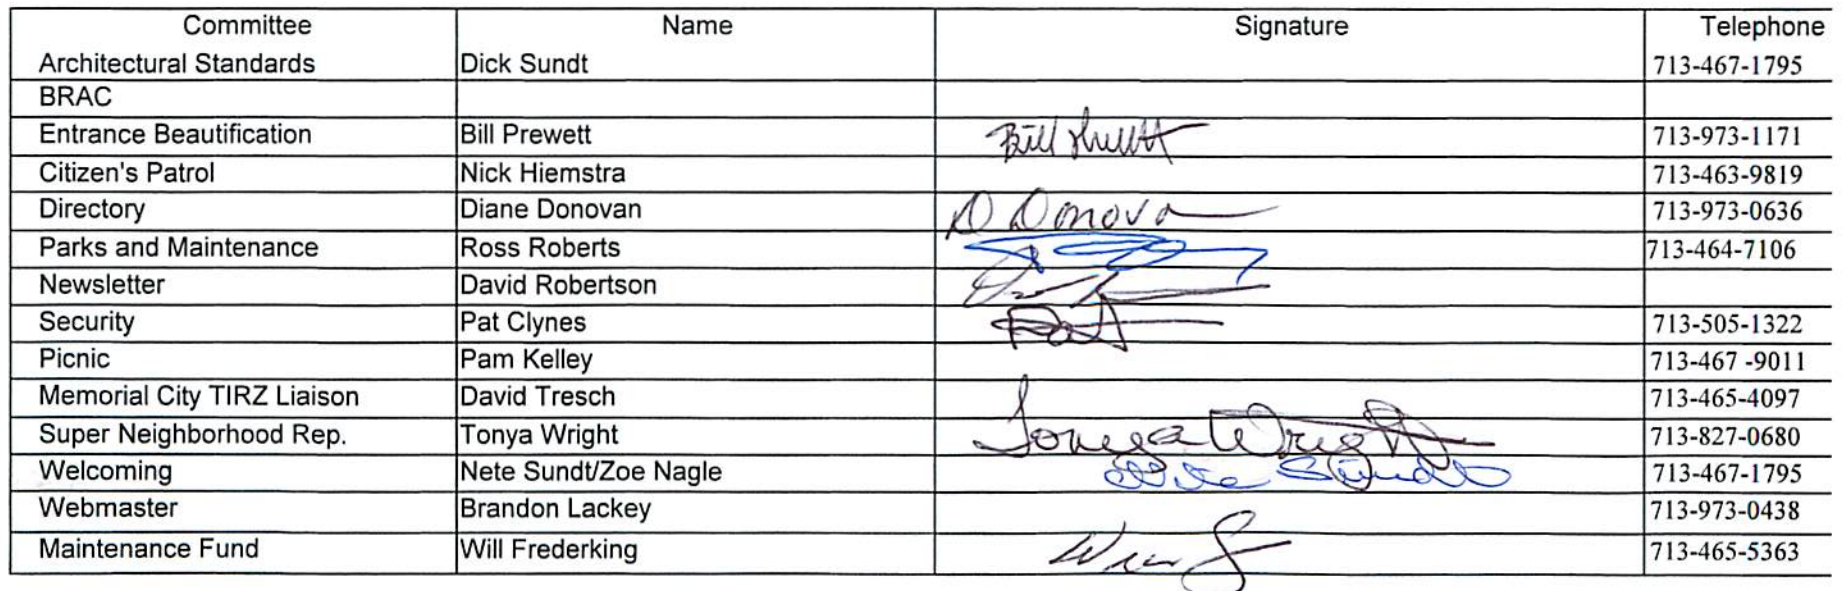 Committee Name Signature Telephone
Architectural Standards Dick Sundt 713-467-1795
BRAC
Entrance Beautification Bill Prewett Bill Prewett 713-973-1171
Citizen's Patrol Nick Hiemstra 713-463-9819
Directory Diane Donovan D Donovan 713-973-0636
Parks and Maintenance Ross Roberts 713-464-7106
Newsletter David Robertson
Security Pat Clynes Pat 713-505-1322
Picnic Pam Kelley 713-467 -9011
Memorial City TIRZ Liaison David Tresch 713-465-4097
Super Neighborhood Rep. Tonya Wright Tonya Wright 713-827-0680
Welcoming Nete Sundt/Zoe Nagle Nete Sundt 713-467-1795
Webmaster Brandon Lackey 713-973-0438
Maintenance Fund Will Frederking 713-465-5363